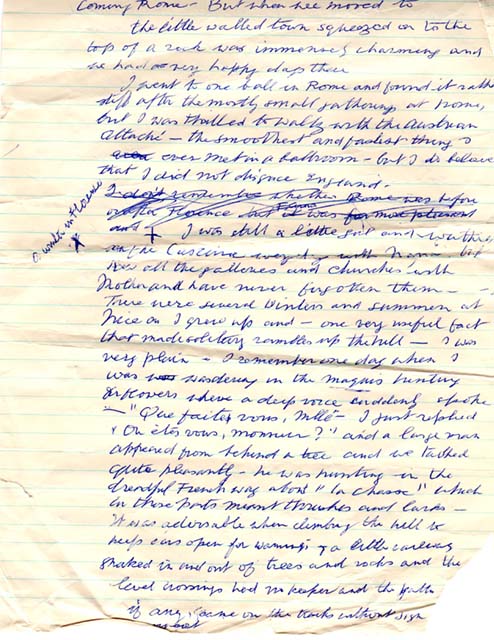 Coming Rome - But when we moved to
the little walled town squeezed on to the
top of a rock was immensely charming and
we had very happy days there
I went to one ball in Rome and found it rather
stiff after the mostly small gatherings at home,
but I was thrilled to waltz with the Austrian
attaché - the smoothest and fastest thing I
ever met in a ballroom - but I do believe
that I did not disgrace England.
I don't remember whether Rome was before
or after Florence but it was far more pleasant
and I was still a little girl and
in the Cascine with Nana but
saw all the galleries and churches with
Mother and have never forgotten them -
There were several winters and summers at
Nice as I grew up and - one very useful fact
that made solitary rambles up the hill - I was
very plain - I remember one day when I
was wandering in the maquis hunting
for flowers where a deep voice suddenly spoke
- "Que faites vous, Mlle - I just replied
"Ou êtes vous, monsieur?" and a large man
appeared from behind a tree and we talked
quite pleasantly - he was hunting in the
dreadful French way about "la chasse" which
in those parts meant thrushes and larks -
It was advisable when climbing the hill to
keep ears open for warnings of a little railway
snaked in and out of trees and rocks and the
level crossings had no keeper and the
if any, came on the tracks without sign